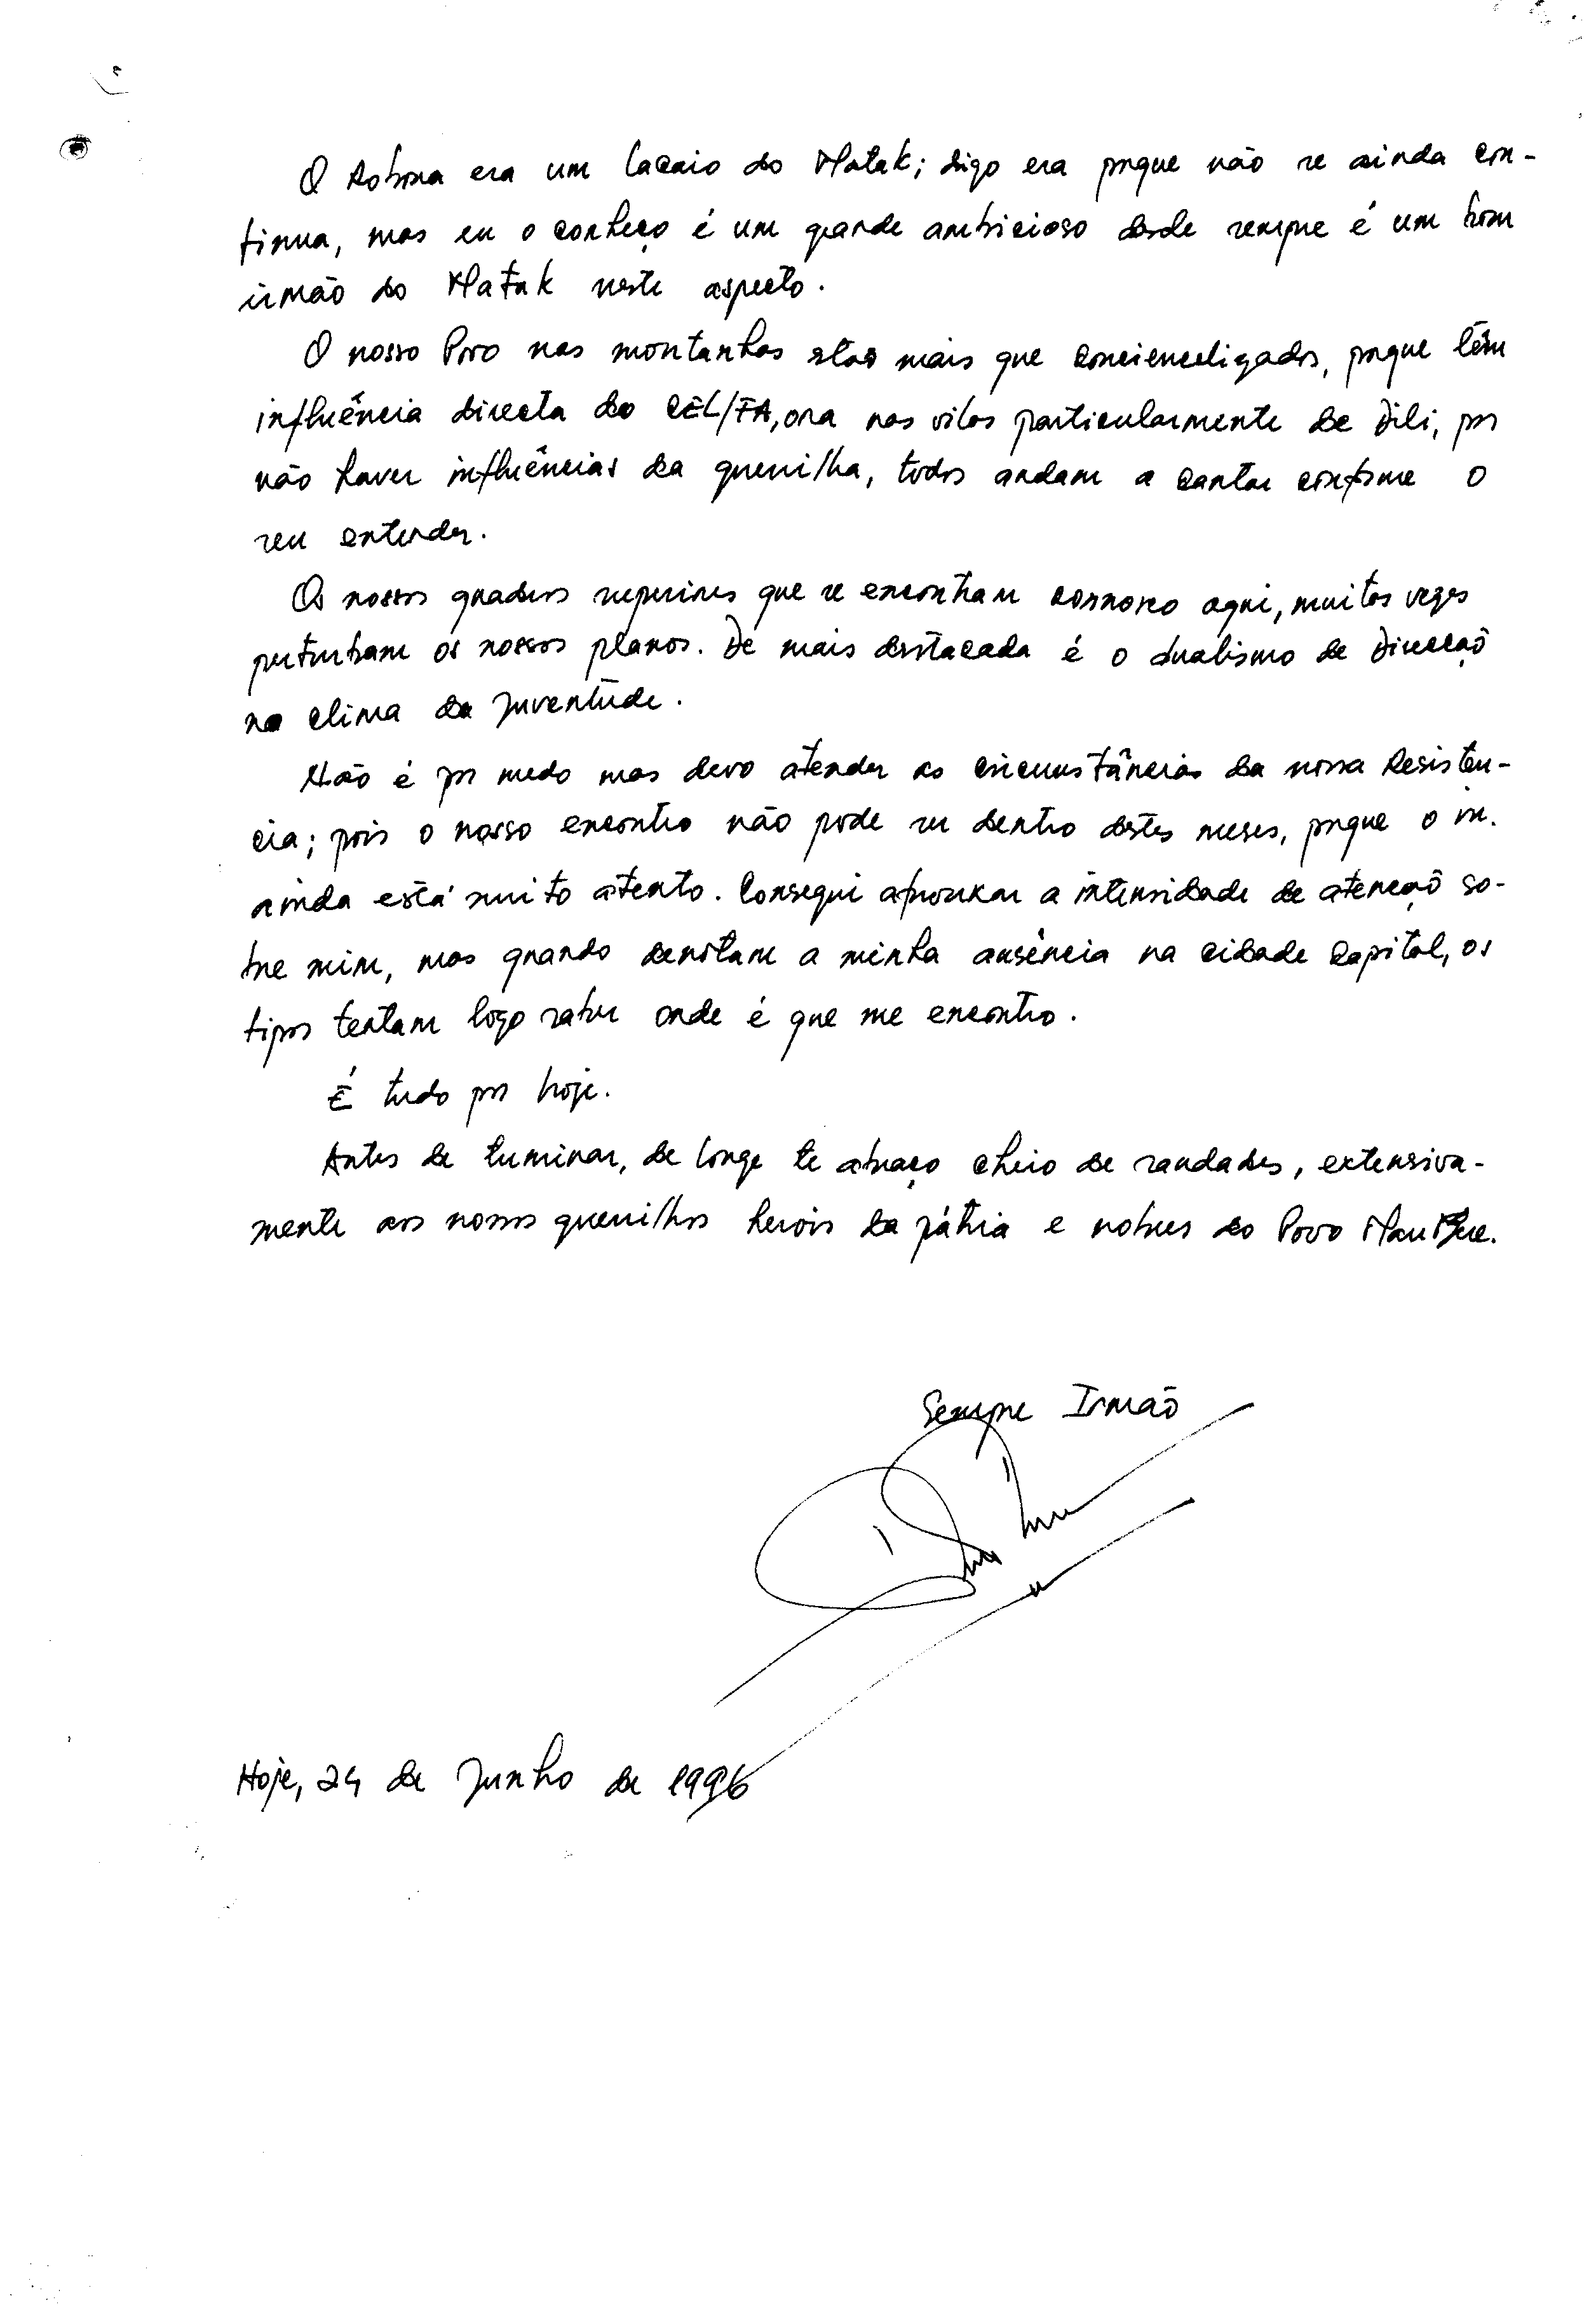 O Robona era um lacaio do Matak; digo era porque não se ainda con-
tinua, mas eu o conheço é um grande ambicioso desde sempre é um bom
irmão do Matak neste aspecto.
O nosso Povo nas montanhas stao mais que conciencelizados, porque têm
influência directa do CEL/FA, ora nas vilas particularmente de Dili, por
não haver influências da guerrilha, todos andam a cantar conforme o
seu entender.
Os nossos quadros superiores que se encontram connosco aqui, muitas vezes
perturbam os nossos planos. De mais destacada é o dualismo de Direcção
no clima da Juventude.
Não é por medo mas devo atender as circunstâncias da nossa Resisten-
cia; pois o nosso encontro não pode ser dentro destes meses, porque o in.
ainda está muito atento. Consegui afrouxar a intensidade de atenção so-
bre mim, mas quando denotam a minha ausência na cidade capital, os
tipos tentam logo saber onde é que me encontro.
É tudo por hoje.
Antes de terminar, de longe te abraço cheio de saudades, extensiva-
mente aos nossos guerrilhos herois da pátria e nobres do Povo MauBere.
Sempre Irmão
Hoje, 24 de Junho de 1996